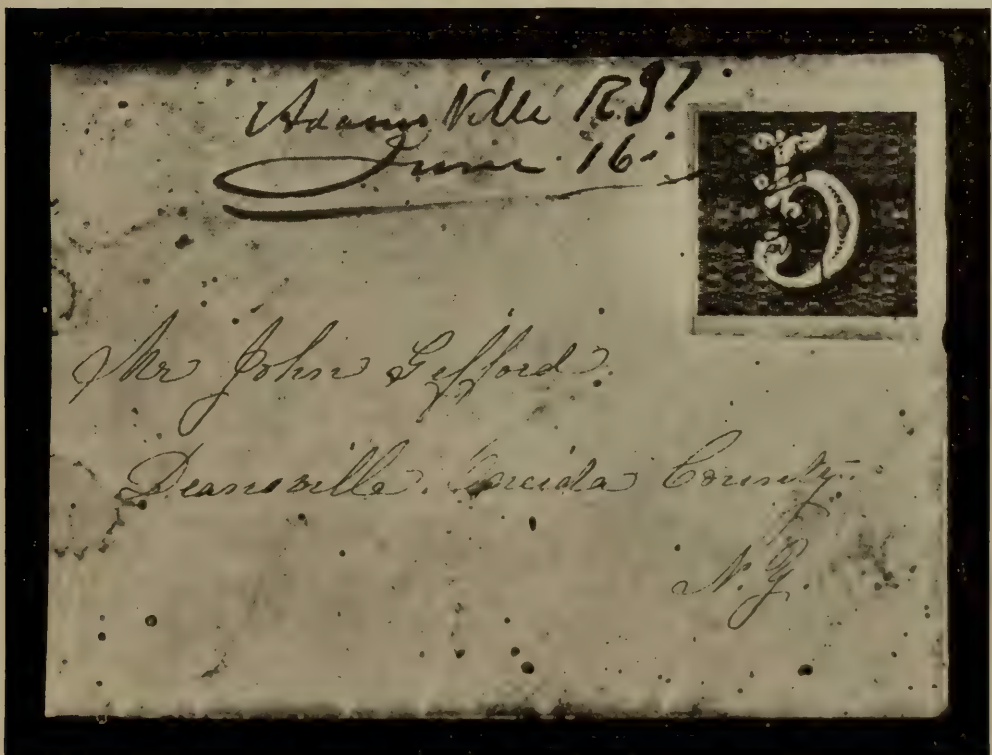 Adamsville R. I.
June 16
5
Mr John Gifford
Deansville. Oneida County
N. Y.